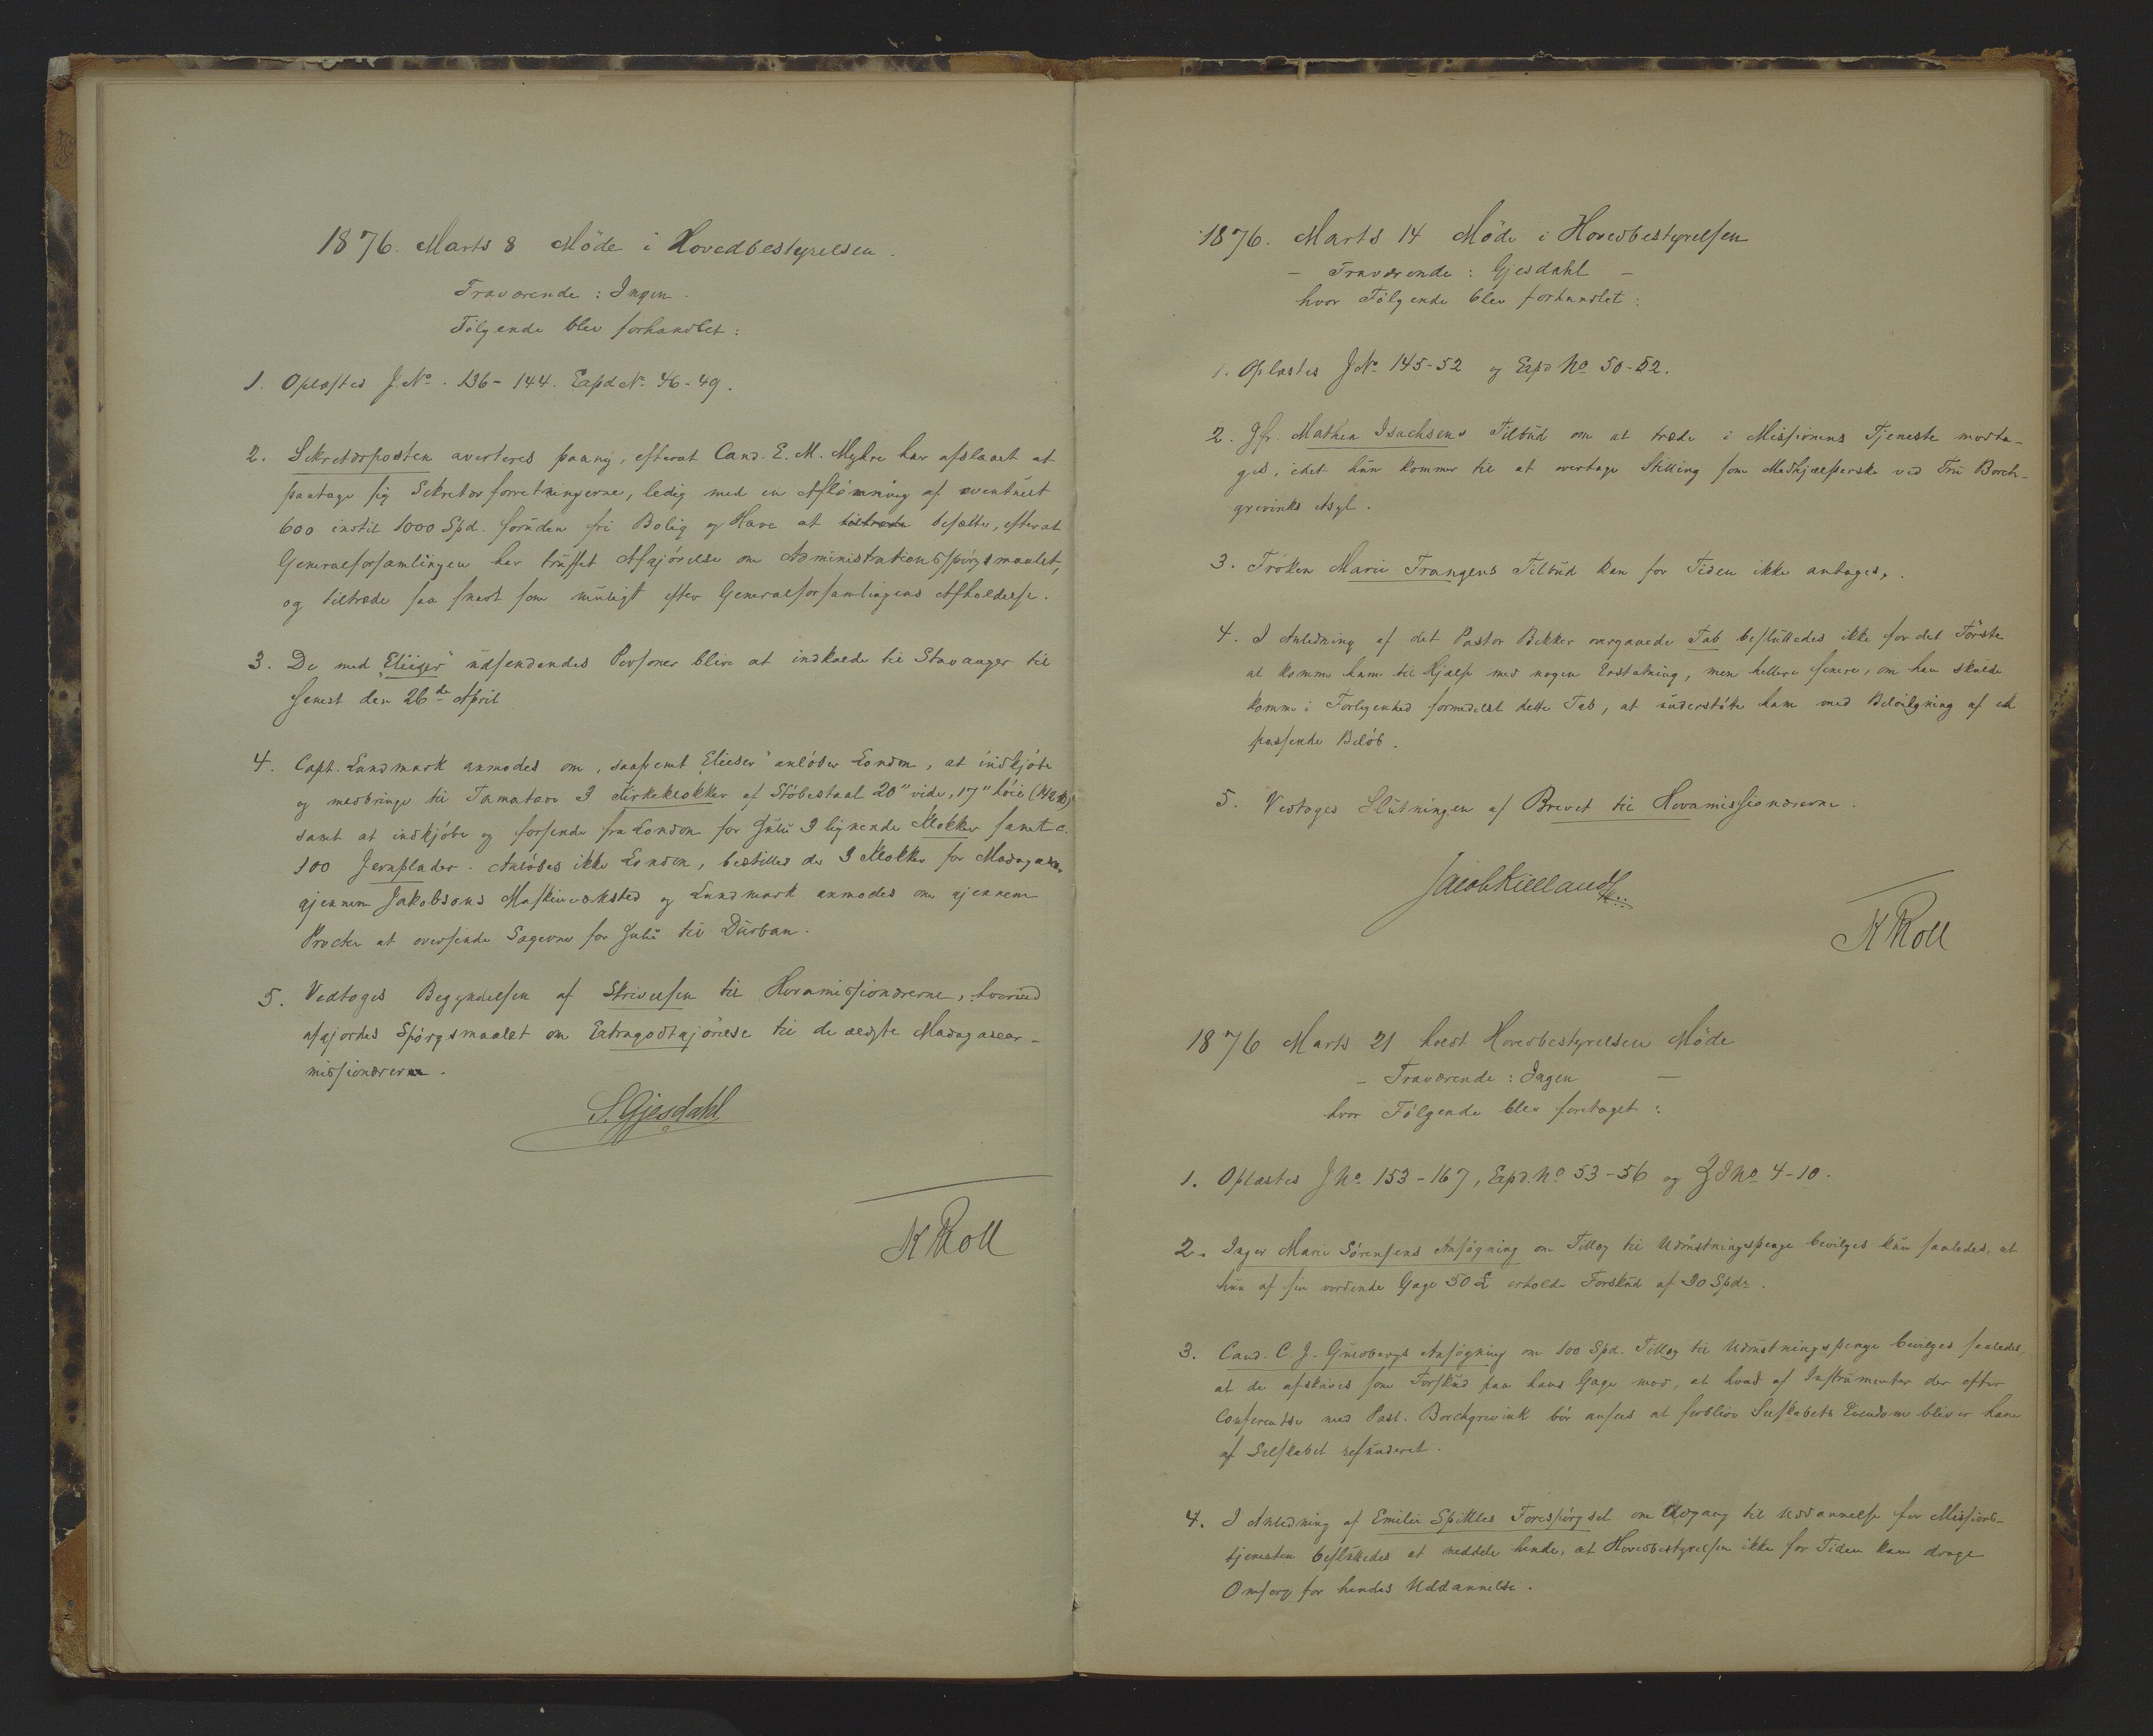 1876. Marts 8 Möde i Hovedbestyrelsen.
Fraværende: Ingen.
Følgende blev forhandlet:
1. Oplæstes J. No. 136-144. Expd No 46-49.
2. Sekretærposten averteres paany, efterat Cand. E. M. Myhre har afslaaet at
paatage sig Sekretærforretningerne, ledig med en Aflönning af eventuelt
600 indtil 1000 Spd. foruden fri Bolig og Have at tiltræde besætte, efterat
Generalforsamlingen har truffet Afgjörelse om Administrationsspörgsmaalet,
og tiltræde saa snart som muligt efter Generalforsamlingens Afholdelse.
3. De med "Elieser" udsendendes Personer blive at indkalde til Stavanger til
senest den 26de April
4. Capt. Landmark anmodes om, saafremt "Elieser" anlöber London, at indkjöbe
og medbringe til Tamatave 3 Kirkeklokker af Stöbestaal 20" vide, 17" höie
samt at indkjöbe og forsende fra London for Zulu 3 lignende Klokker samt c.
100 Jernplader. Anlöbes ikke London, bestilles de 3 Klokker for Madagascar
gjennem Jakobsons Maskinværksted og Landmark anmodes om gjennem
Procter at oversende Sagerne for Zulu til Durban.
5. Vedtoges Begyndelsen af Skrivelsen til Hovamissionærerne, hvorved
afgjordes Spörgsmaalet om Extragodtgjörelse til de ældste Madagascar-
missionærerne.
S. Gjesdahl
K Roll
1876. Marts 14 Möde i Hovedbestyrelsen
- Fraværende: Gjesdahl -
hvor Fölgende blev forhandlet:
1. Oplæstes J No 145-52 og Expd No 50-52.
2. Jfr. Mathea Isachsens Tilbud om at træde i Missionens Tjeneste modta-
ges, idet hun kommer til at overtage Stilling som Medhjælperske ved Fru Borch-
grevinks Asyl.
3. Fröken Marie Frangens Tilbud kan for Tiden ikke antages.
4. I Anledning af det Pastor Bekker overgaaede Tab besluttedes ikke for det Förste
at komme ham til Hjælp med nogen Erstatning, men hellere senere, om han skulde
komme i Forlegenhed formedelst dette Tab, at understötte ham med Bevilgning af et
passende Belöb.
5. Vedtoges Slutningen af Brevet til Hovamissionærerne.
Jacob Kielland
K Roll
1876 Marts 21 holdt Hovedbestyrelsen Möde
- Fraværende: Ingen -
hvor Fölgende blev foretaget:
1. Oplæstes J No 153-167, Expd. No 53-56 og No 4-10.
2. Inger Marie Sörensens Ansögning om Tillæg til Udrustningspenge bevilges kun saaledes, at
hun af sin vordende Gage 50 £ erholde Forskud af 30 Spdr.
3. Cand. C. J. Guldbergs Ansögning om 100 Spd. Tillæg til Udrustningspenge bevilges saaledes
at de afskrives som Forskud paa hans Gage mod, at hvad af Instrumenter der efter
Conferentse med Past. Borchgrevink bör ansees at forblive Selskabets Eiendom bliver ham
af Selskabet refunderet.
4. I Anledning af Emilie Forespörgsel om Adgang til Uddannelse for Missions-
tjenesten besluttedes at meddele hende, at Hovedbestyrelsen ikke for Tiden kan drage
Omsorg for hendes Uddannelse.